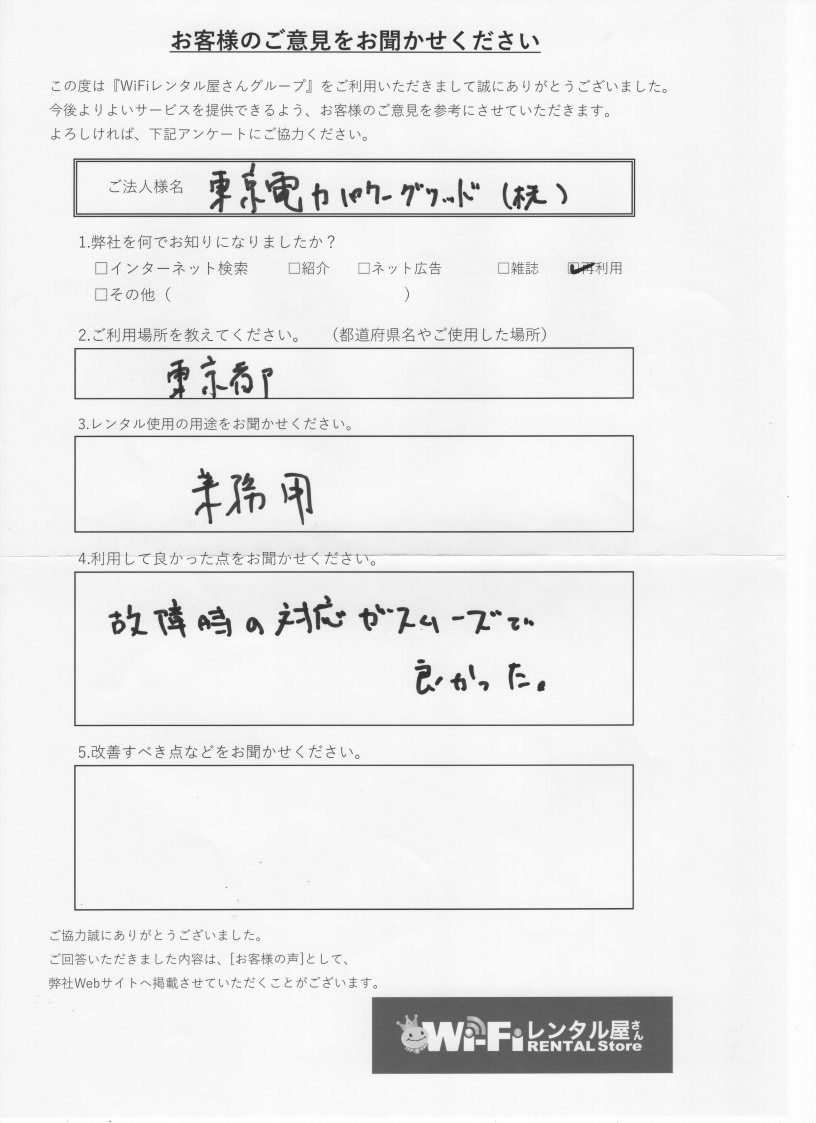 お客様のご意見をお聞かせください
この度は『WiFiレンタル屋さんグループ』をご利用いただきまして誠にありがとうございました。
今後よりよいサービスを提供できるよう、お客様のご意見を参考にさせていただきます。
よろしければ、下記アンケートにご協力ください。
ご法人様名 東京電力パワーグリッド(株)
1.弊社を何でお知りになりましたか？
□インターネット検索 □紹介 □ネット広告 □雑誌 ☑再利用
□その他（ ）
2.ご利用場所を教えてください。 （都道府県名やご使用した場所）
東京都
3.レンタル使用の用途をお聞かせください。
業務用
4.利用して良かった点をお聞かせください。
故障時の対応がスムーズで
良かった。
5.改善すべき点などをお聞かせください。
ご協力誠にありがとうございました。
ご回答いただきました内容は、[お客様の声]として、
弊社Webサイトへ掲載させていただくことがございます。
Wi-Fiレンタル屋さん
RENTAL Store